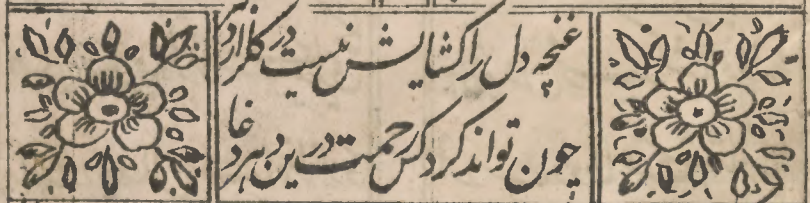 غنچه دل را کشایش نیست در کلزار دهر
چون تواند کرد کس رحمت درین دهر دغا